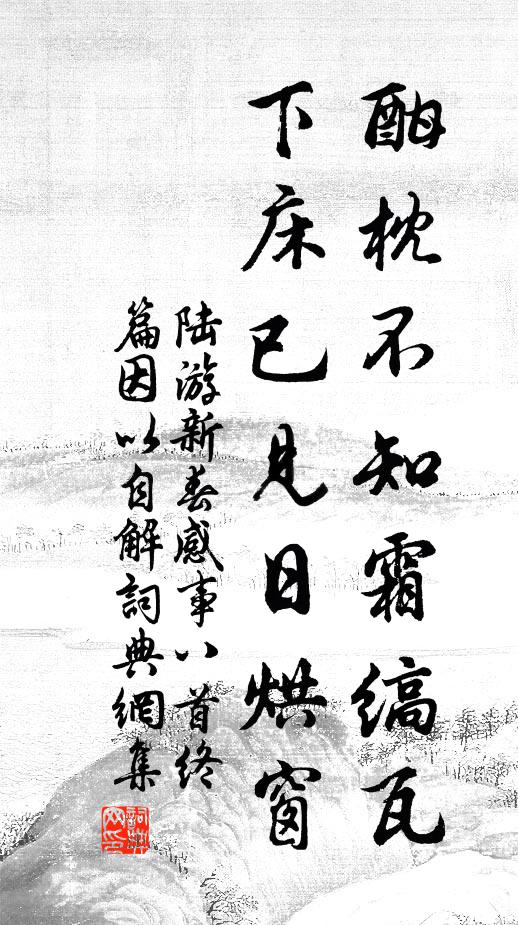 酣枕不知霜缟瓦
下床已见日烘窗
陆游新春感事八首终
篇因以自解詞典網集